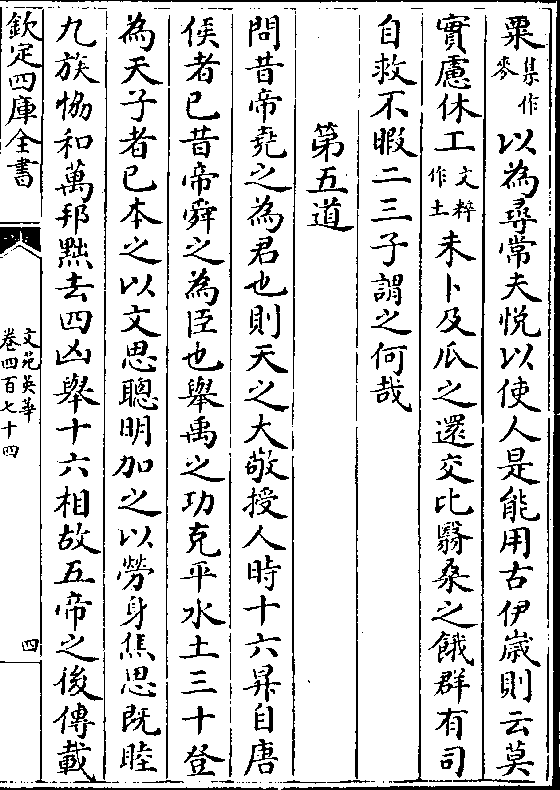 粟集作麥以為尋常夫悅以使人是能用古伊歲則云莫
實慮休工文粹作土未卜及瓜之還交比翳桑之餓群有司
自救不暇二三子謂之何哉
第五道
問昔帝堯之為君也則天之大敬授人時十六昇自唐
侯者已昔帝舜之為臣也舉禹之功克平水土三十登
為天子者已本之以文思聰明加之以勞身焦思既睦
九族協和萬邦黜去四凶舉十六相故五帝之後傳載
欽定四庫全書
文苑英華
卷四百七十四
四